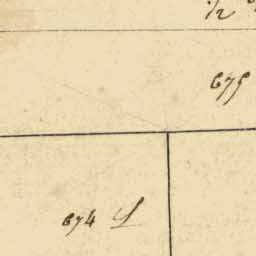 1/2
675
674